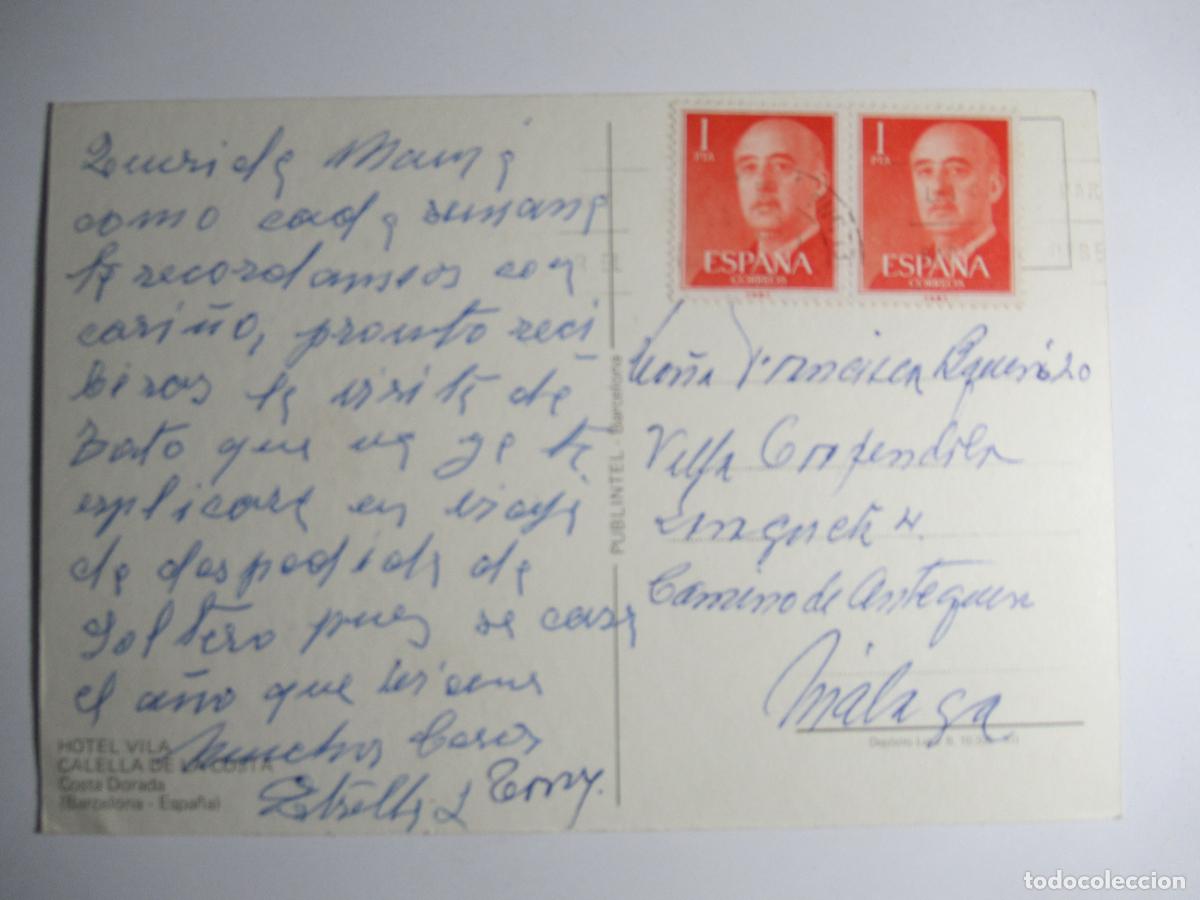 Querida Mamá
como cada semana
te recordamos con
cariño, pronto reci
biras la visita de
que ya te
explicara en viaje
de despedida de
soltero pues se casa
el año que viene
muchos besos
Estrella y Tony.
HOTEL VILA
CALELLA DE LA COSTA
Costa Dorada
(Barcelona - España)
PUBLINTEL - Barcelona
1
PTA
ESPAÑA
CORREOS
1
PTA
ESPAÑA
CORREOS
Doña Francisca
Villa
Camino de Antequera
Málaga
Depósito
todocoleccion